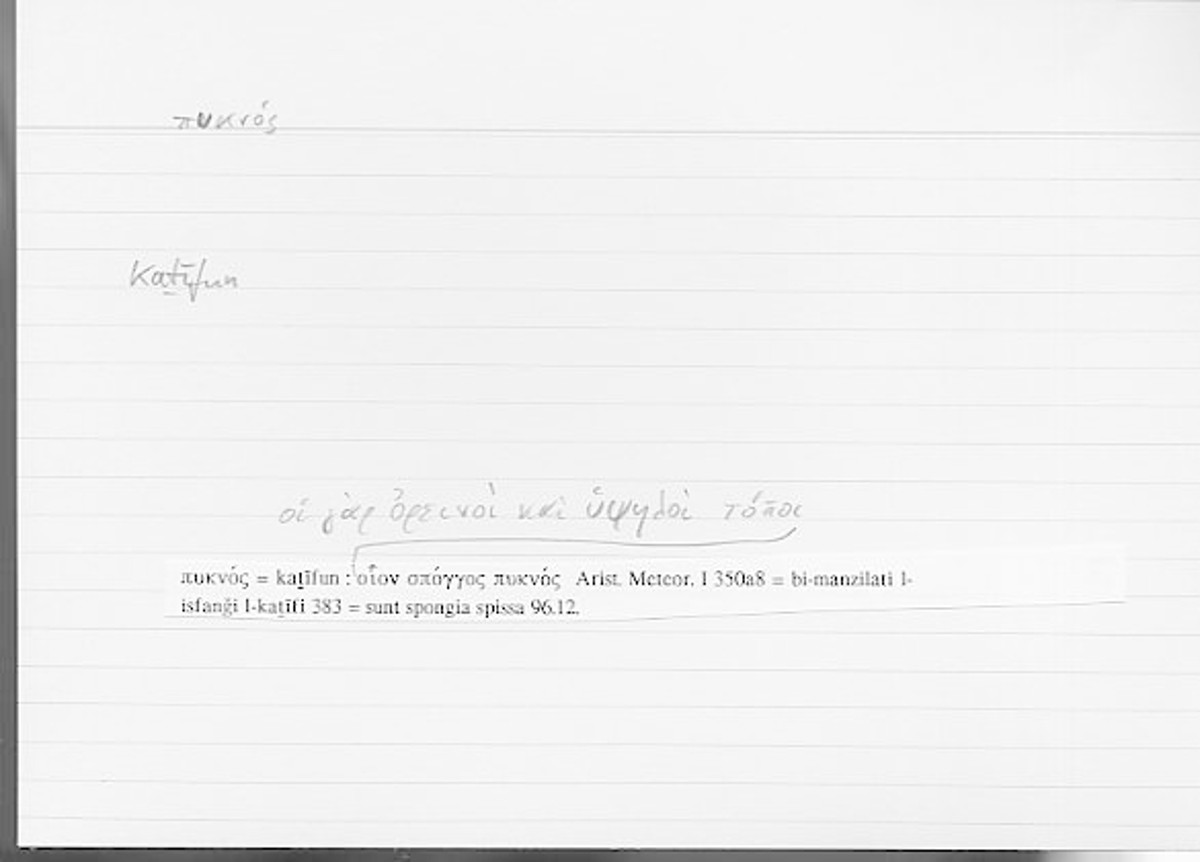 πυκνός
kaṯīfun
οἱ γὰρ ὀρεινοὶ καὶ ὑψηλοὶ τόποι
πυκνός = kaṯīfun : οἷον σπόγγος πυκνός Arist. Meteor. I 350a8 = bi-manzilati l-
isfanǧi l-kaṯīfi 383 = sunt spongia spissa 96.12.